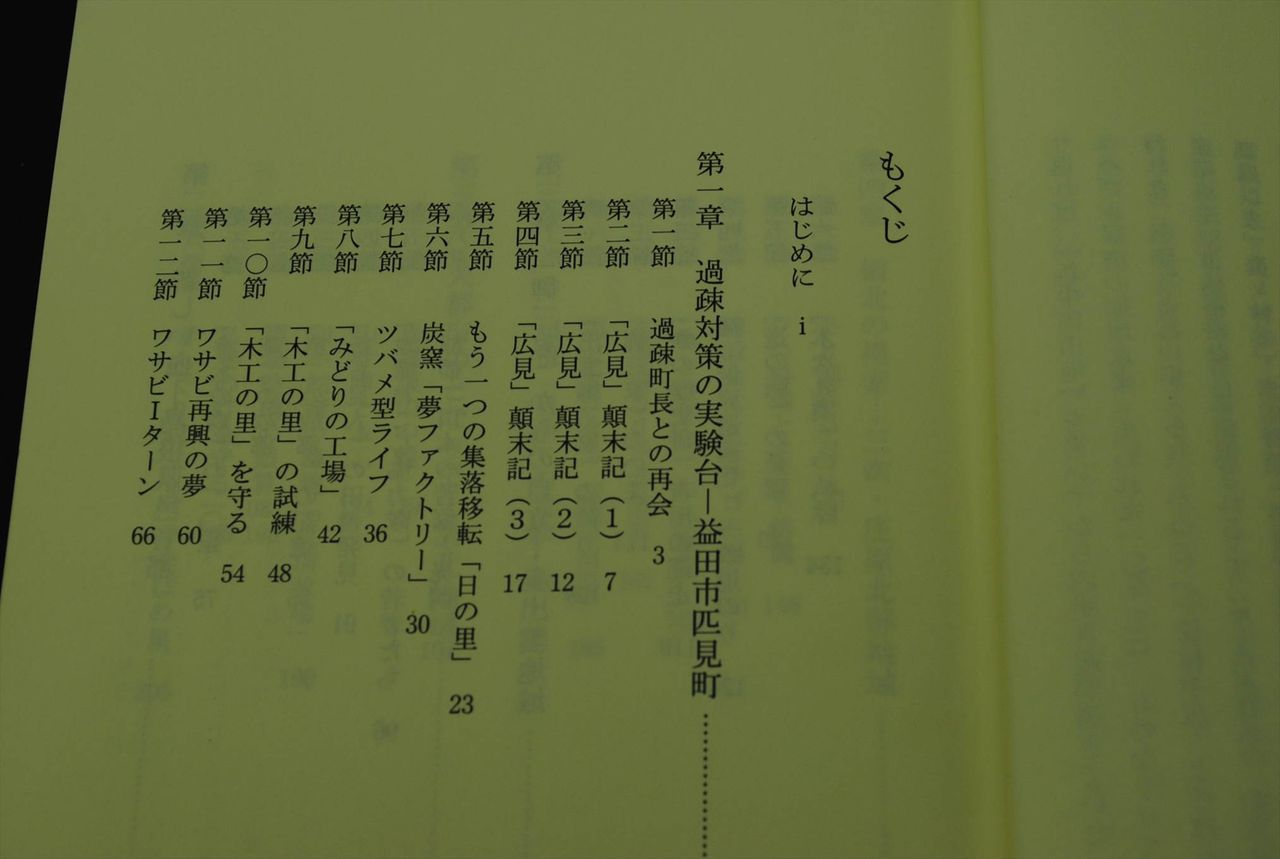 もくじ
はじめに i
第一章 過疎対策の実験台―益田市匹見町………………
第一節 過疎町長との再会 3
第二節 「広見」顛末記(1) 7
第三節 「広見」顛末記(2) 12
第四節 「広見」顛末記(3) 17
第五節 もう一つの集落移転「日の里」 23
第六節 炭窯「夢ファクトリー」 30
第七節 ツバメ型ライフ 36
第八節 「みどりの工場」 42
第九節 「木工の里」の試練 48
第一〇節 「木工の里」を守る 54
第一一節 ワサビ再興の夢 60
第一二節 ワサビIターン 66